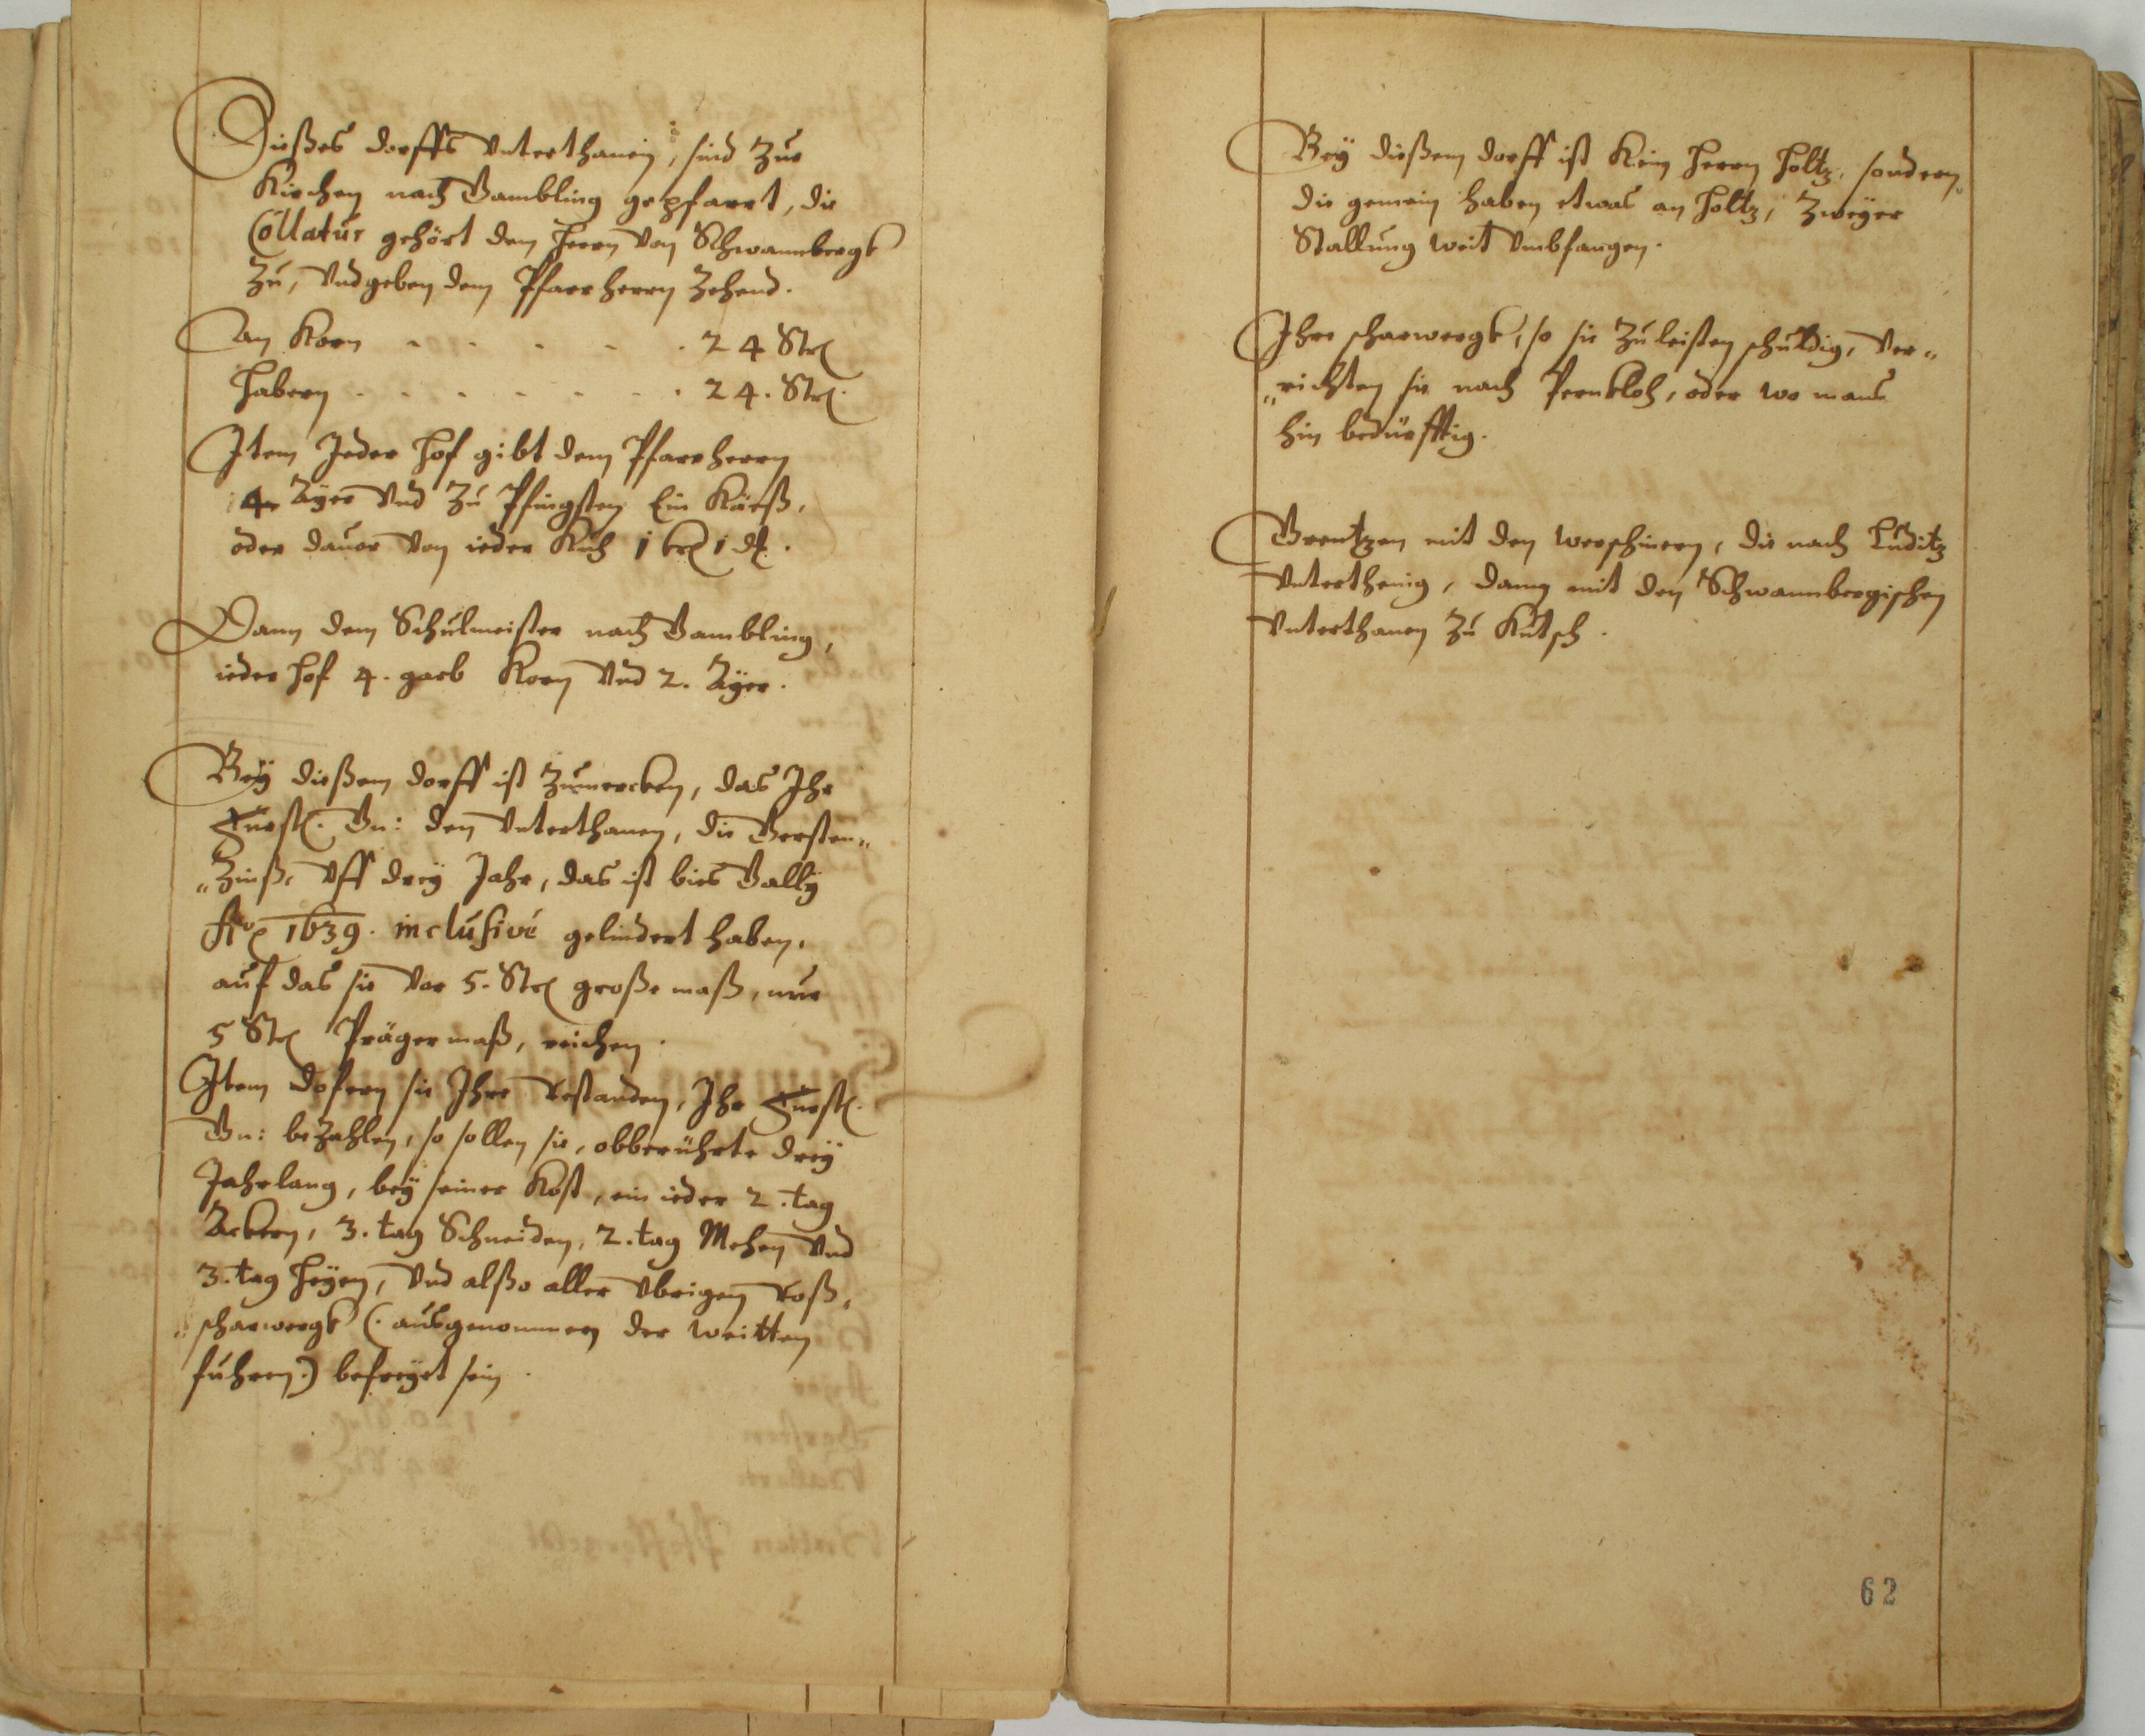 Dießes dorffs Unterthanen, sind Zur
Kirchen nach Gambling gepfarrt, die
Collatur gehört dem Herrn von Schwambergk
Zu, Vnd geben dem Pfarrherrn Zehend.
An Korn - - - - - . 24 Str
Habern . - - - - - . 24. Str.
Item Jeder Hof gibt dem Pfarrherrn
4 Äyer Vnd Zu Pfingsten Ein Käeß,
oder dauor von ieder Kuh 1 kr 1 d.
Dann dem Schulmeister nach Gambling,
ieder Hof 4. garb Korn Vnd 2. Äyer.
Bey dießem dorff ist Zumercken, das Ihr
Fürstl. Gn: den Vnterthanen, die Gersten„
„Zinß, Vff drey Jahr, das ist bies Gally
Ao 1639. inclusivé gelindert haben,
auf das sie Vor 5. Str große maß, nur
5 Str Präger maß, reichen.
Item dofern sie Ihre restanden, Ihr Fürstl.
Gn: bezahlen, so sollen sie, obberührte drey
Jahrlang, bey seiner Kost, ein ieder 2. tag
Ackern, 3. tag Schneiden, 2. tag Mehen Vnd
3. tag Heyen, Vnd alßo aller Vbrigen Roß,
„scharwergk (. ausgenommen der weitten
fuhren.) befreyet sein.
Bey dießem dorff ist Kein Herrn Holtz, sondern
die gemein haben etwas an Holtz, Zweyer
Stallung weit Vmbfangen.
Ihre scharwergk, so sie Zuleisten schuldig, Ver„
„richten sie nach Pernkloh, oder wo mans
hin bedürfftig.
Grentzen mit den werschinern, die nach Luditz
Vnterthenig, dann mit den Schwambergischen
Vnterthanen Zu Kutsch.
62